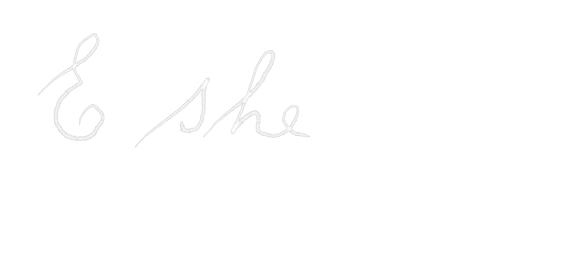 E she